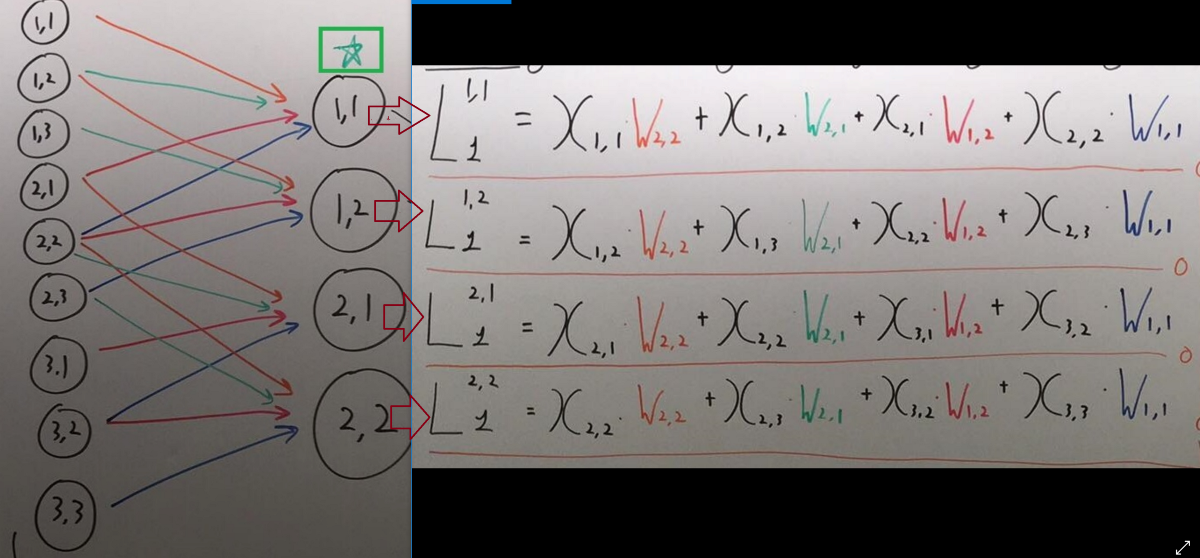 1,1
1,2
1,3
2,1
2,2
2,3
3.1
3,2
3,3
1,1
1,2
2,1
2,2
L 1,1 1 = X1,1 · W2,2 + X1,2 · W2,1 + X2,1 · W1,2 + X2,2 · W1,1
L 1,2 1 = X1,2 · W2,2 + X1,3 · W2,1 + X2,2 · W1,2 + X2,3 · W1,1
L 2,1 1 = X2,1 · W2,2 + X2,2 · W2,1 + X3,1 · W1,2 + X3,2 · W1,1
L 2,2 1 = X2,2 · W2,2 + X2,3 · W2,1 + X3,2 · W1,2 + X3,3 · W1,1